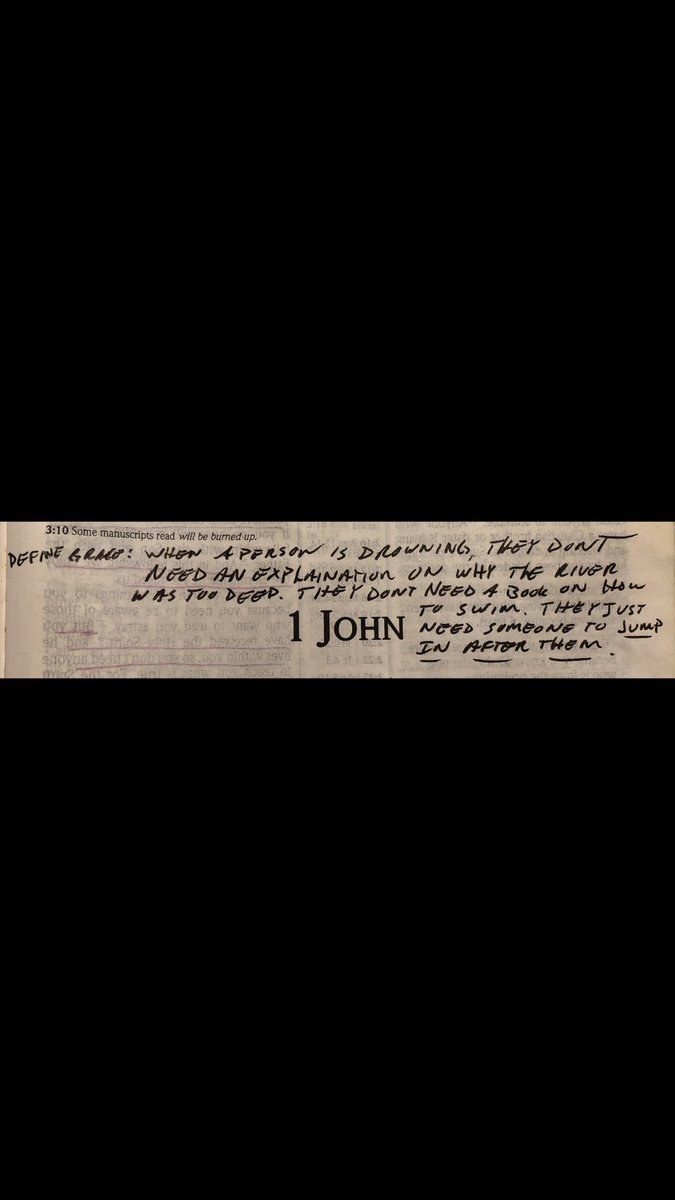 3:10 Some manuscripts read will be burned up.
DEFINE GRACE: WHEN A PERSON IS DROWNING, THEY DONT
NEED AN EXPLAINATION ON WHY THE RIVER
WAS TOO DEEP. THEY DONT NEED A BOOK ON HOW
TO SWIM. THEY JUST
NEED SOMEONE TO JUMP
IN AFTER THEM.
1 JOHN